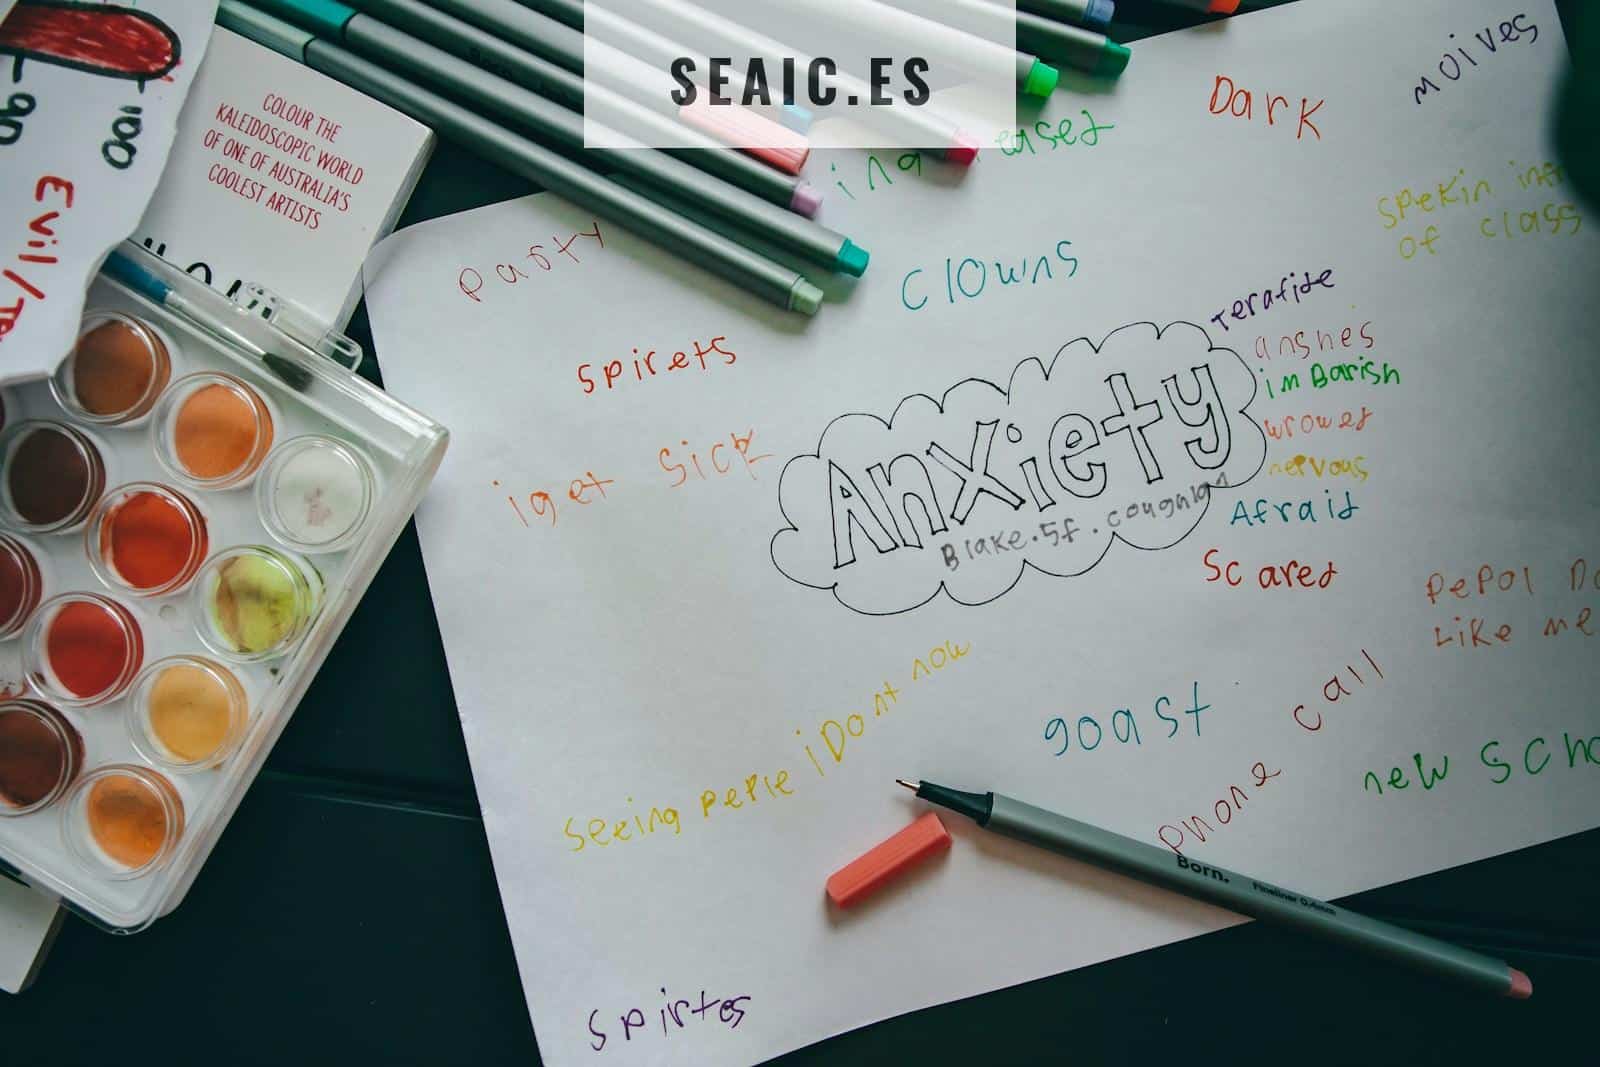 SEAIC.ES
COLOUR THE
KALEIDOSCOPIC WORLD
OF ONE OF AUSTRALIA'S
COOLEST ARTISTS
100
90
Evil/
Dark
moives
spekin
of class
party
clowns
terafide
spirets
anshes
imBarish
wrowed
nervous
iget sick
Anxiety
Blake.5f.
Afraid
Scared
pepol
Like me
seeing peple iDont now
goast
phone call
new
Born.
Fineliner 0,4mm
spirtes